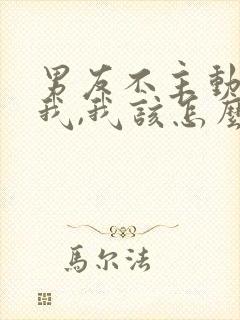 男友不主動
我,我該怎麼
馬尔法